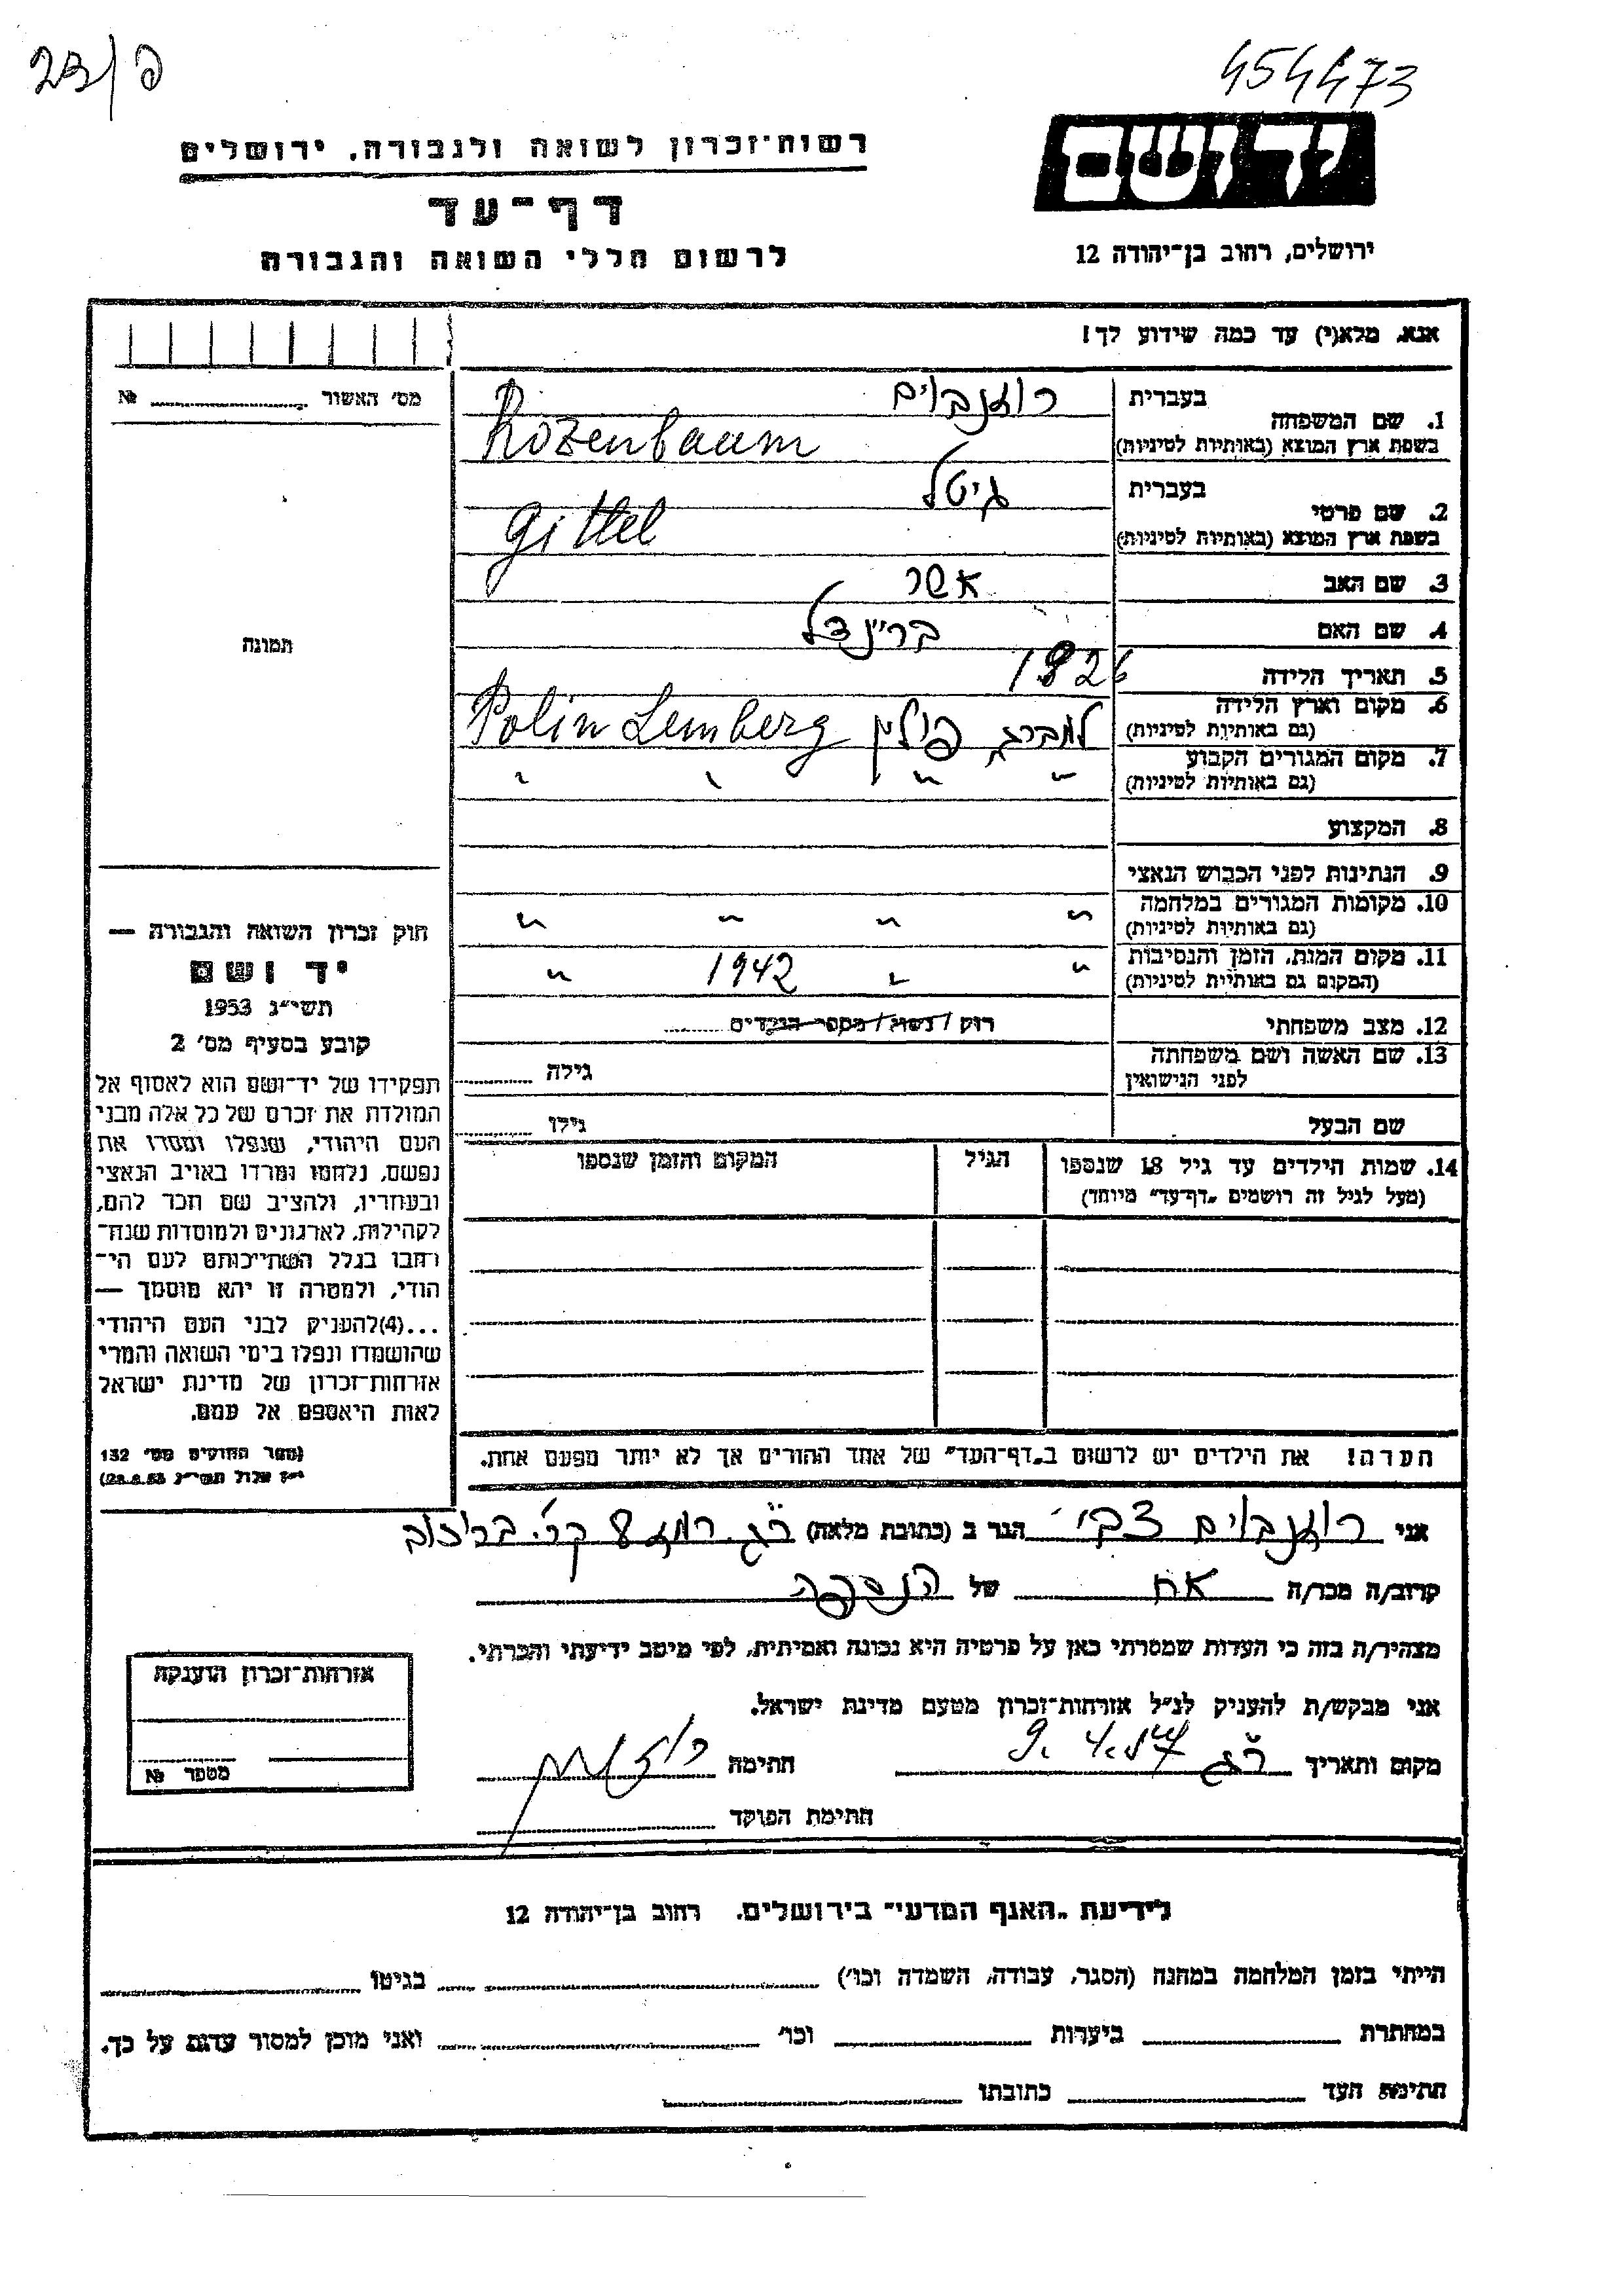 23/פ
454473
יד ושם
רשות־זכרון לשואה ולגבורה, ירושלים
דף־עד
לרשום חללי השואה והגבורה
ירושלים, רחוב בן־יהודה 12
אנא, מלא(י) עד כמה שידוע לך!
מס' האשור №
תמונה
1. שם המשפחה בעברית רוזנבוים
בשפת ארץ המוצא (באותיות לטיניות) Rozenbaum
2. שם פרטי בעברית גיטל
בשפת ארץ המוצא (באותיות לטיניות) Gittel
3. שם האב אשר
4. שם האם בריינדל
5. תאריך הלידה 1926
6. מקום וארץ הלידה למברג פולין Polin Lemberg
(גם באותיות לטיניות)
7. מקום המגורים הקבוע " " " "
(גם באותיות לטיניות)
8. המקצוע
9. הנתינות לפני הכבוש הנאצי
10. מקומות המגורים במלחמה " " " "
(גם באותיות לטיניות)
11. מקום המות, הזמן והנסיבות " " 1942 "
(המקום גם באותיות לטיניות)
12. מצב משפחתי רוק / נשוי / מספר הילדים
13. שם האשה ושם משפחתה גילה
לפני הנישואין
שם הבעל גילו
14. שמות הילדים עד גיל 18 שנספו הגיל המקום והזמן שנספו
(מעל לגיל זה רושמים "דף־עד" מיוחד)
הערה! את הילדים יש לרשום ב"דף־העד" של אחד ההורים אך לא יותר מפעם אחת.
חוק זכרון השואה והגבורה —
יד ושם
תשי"ג 1953
קובע בסעיף מס' 2
תפקידו של יד־ושם הוא לאסוף אל
המולדת את זכרם של כל אלה מבני
העם היהודי, שנפלו ומסרו את
נפשם, נלחמו ומרדו באויב הנאצי
ובעוזריו, ולהציב שם וזכר להם,
לקהילות, לארגונים ולמוסדות שנח־
רבו בגלל השתייכותם לעם הי־
הודי, ולמטרה זו יהא מוסמך —
...(4)להעניק לבני העם היהודי
שהושמדו ונפלו בימי השואה והמרי
אזרחות־זכרון של מדינת ישראל
לאות היאספם אל עמם.
(ספר החוקים מס' 132
י"ז אלול תשי"ג 28.8.53)
אני רוזנבוים צבי הגר ב (כתובת מלאה) ר"ג רמז 8 קר'
קרוב/ה מכר/ה אח של הנספה
מצהיר/ה בזה כי העדות שמסרתי כאן על פרטיה היא נכונה ואמיתית, לפי מיטב ידיעתי והכרתי.
אני מבקש/ת להעניק לנ"ל אזרחות־זכרון מטעם מדינת ישראל.
מקום ותאריך ר"ג 9.4.57 חתימה
חתימת הפוקד
אזרחות־זכרון הוענקה
מספר №
לידיעת "האגף המדעי" בירושלים, רחוב בן־יהודה 12
הייתי בזמן המלחמה במחנה (הסגר, עבודה, השמדה וכו') בגיטו
במחתרת ביערות וכו' ואני מוכן למסור עדות על כך.
חתימת העד כתובתו